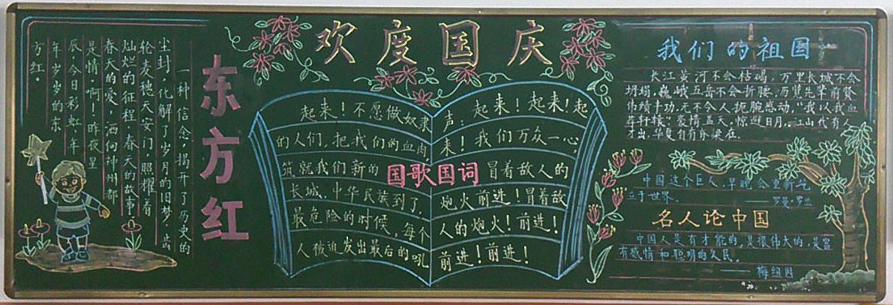 东方红
一种信念，揭开了历史的
尘封，化解了岁月的旧梦，齿
轮麦穗天安门，照耀着
灿烂的征程，春天的故事
春天的爱，洒向神州都
是情，啊！昨夜星
辰，今日彩虹，年
年岁岁的东
方红。
欢度国庆
国歌国词
起来！不愿做奴隶
的人们，把我们的血肉
筑就我们新的
长城，中华民族到了，
最危险的时候，每个
人被迫发出最后的吼
声，起来！起来！起
来！我们万众一心
冒着敌人的
炮火前进！冒着敌
人的炮火！前进！
前进！前进！
我们的祖国
长江黄河不会枯竭，万里长城不会
坍塌，巍峨五岳不会折腰，历览先辈前贤
伟绩丰功，无不令人扼腕感动，“我以我血
荐轩辕”豪情盖天，惊迴日月，江山代有人
才出，华夏自有脊梁在。
中国这个巨人，早晚会重新屹
立于世界。——罗曼·罗兰
名人论中国
中国人是有才能的，是很伟大的，是富
有感情和聪明的人民。
——梅纽因